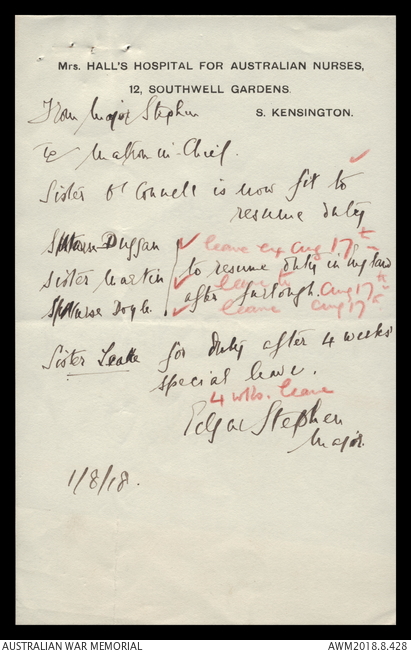 Mrs. HALL'S HOSPITAL FOR AUSTRALIAN NURSES,
12, SOUTHWELL GARDENS.
S. KENSINGTON.
From Major Stephen
To Matron-in-Chief.
Sister O'Connell is now fit to
resume duty
Duggan leave ex Aug 17th
Sister Martin to resume duty in England
leave to
S/Nurse Doyle after furlough. Aug 17th
leave Aug 17th
Sister Leake for duty after 4 weeks'
special leave.
4 wks. leave
Edgar Stephen
Major.
1/8/18.
AUSTRALIAN WAR MEMORIAL
AWM2018.8.428